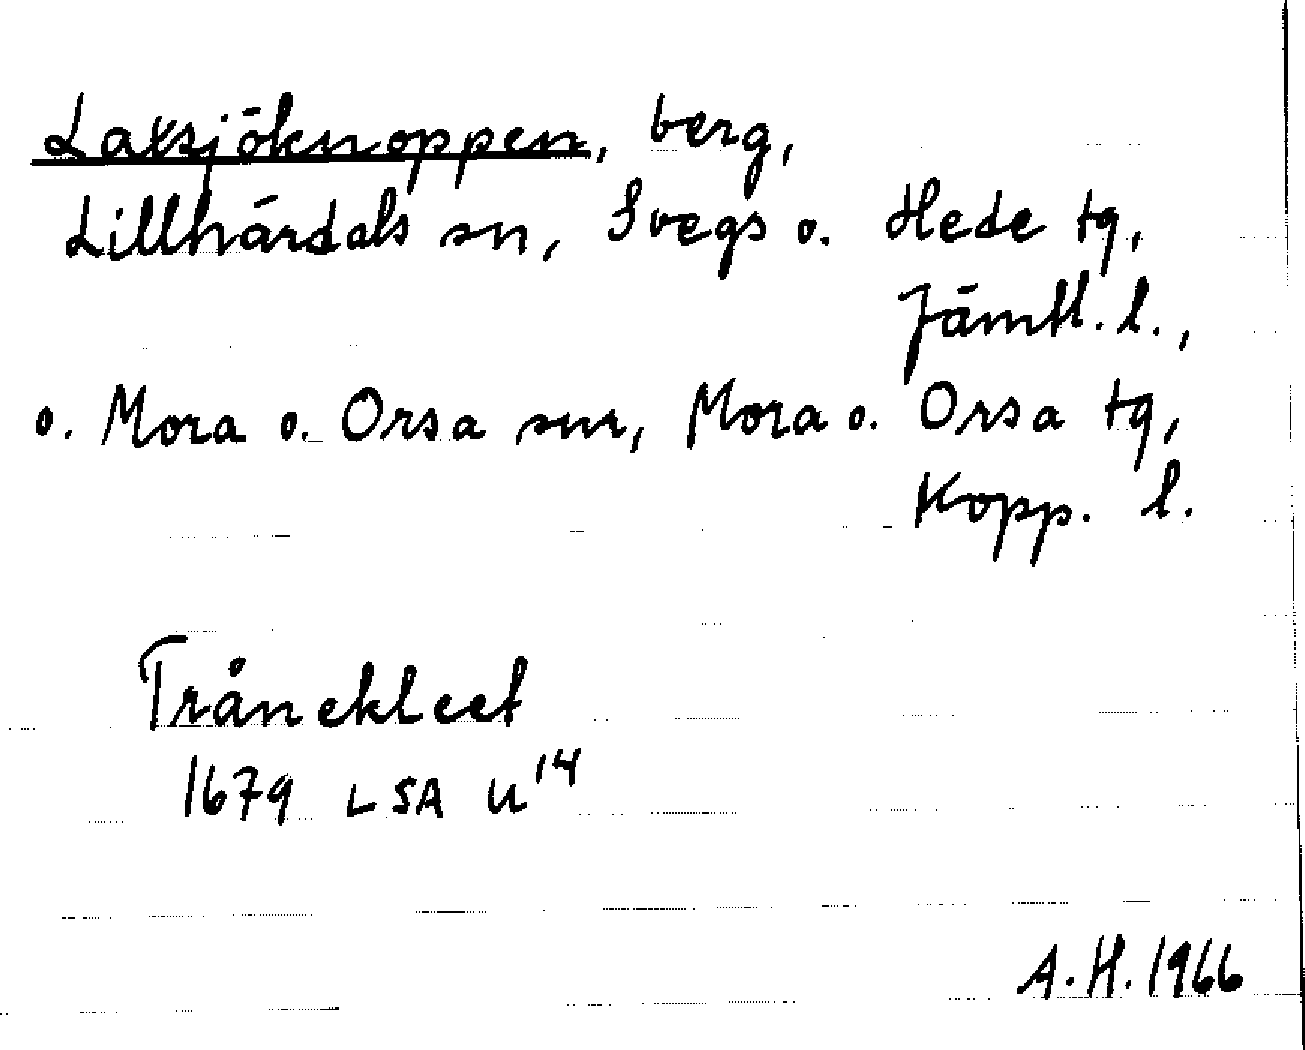 Laxsjöknoppen, berg,
Lillhärdals sn, Svegs o. Hede tg,
Jämtl. l.,
o. Mora o. Orsa snr, Mora o. Orsa tg,
Kopp. l.
Trånekleet
1679 LSA U14
A.H. 1966